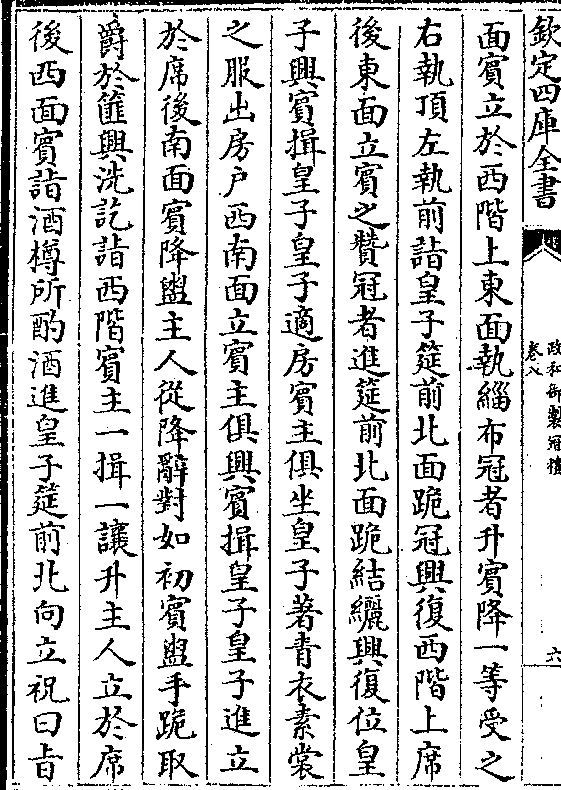 欽定四庫全書
政和御製冠禮
卷八
六
面賓立於西階上東面執緇布冠者升賓降一等受之
右執頂左執前詣皇子筵前北面跪冠興復西階上席
後東面立賓之贊冠者進筵前北面跪結纚興復位皇
子興賓揖皇子皇子適房賓主俱坐皇子著青衣素裳
之服出房戶西南面立賓主俱興賓揖皇子皇子進立
於席後南面賓降盥主人從降辭對如初賓盥手跪取
爵於篚興洗訖詣西階賓主一揖一讓升主人立於席
後西面賓詣酒樽所酌酒進皇子筵前北向立祝曰旨